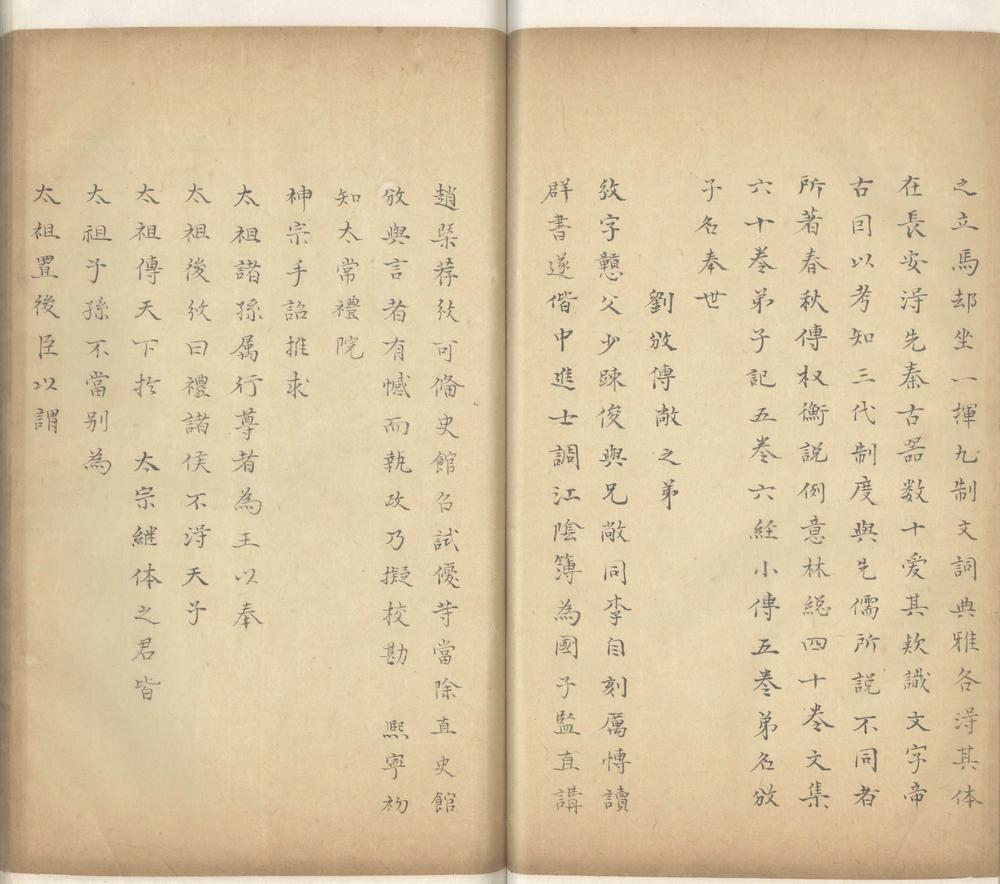 之立馬却坐一揮九制文詞典雅各淂其体
在長安淂先秦古器数十爱其欵識文字帝
古因以考知三代制度與先儒所説不同者
所著春秋傳权衡説例意林緫四十巻文集
六十巻弟子記五巻六経小傳五巻弟名攽
子名奉世
劉攽傳敞之弟
攽字戇父少踈俊與兄敞同李自刻厲愽讀
群書遂偕中進士調江陰簿為國子監直講
趙槩荐攽可俻史館召試優䓁當除直史館
攽與言者有憾而執政乃擬校勘 熙寧初
知太常禮院
神宗手詔推求
太祖諸孫属行尊者為王以奉
太祖後攽曰禮諸侯不淂天子
太祖傳天下扵 太宗継体之君皆
太祖子孫不當别為
太祖置後臣以謂